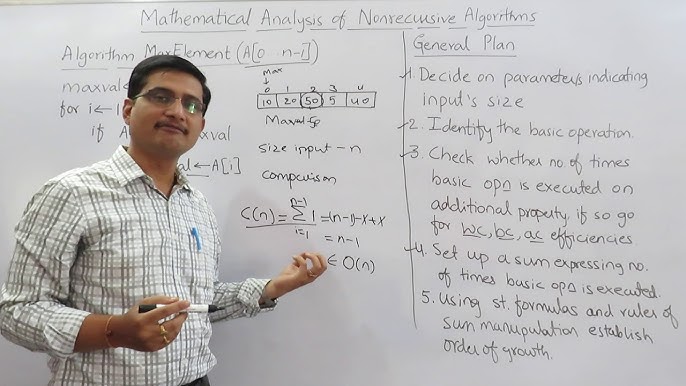 Mathematical Analysis of Nonrecursive Algorithms
Algorithm MaxElement (A[0 n-1])
maxval
for i←1
if A xval
val←A[i]
Max
0 1 2 3 4
10 20 50 5 40
Maxval 50
size input - n
comparison
C(n) = n-1 Σ i=1 1 = (n-1)-1+1
= n-1
∈ O(n)
General Plan
1. Decide on parameters indicating
input's size
2. Identify the basic operation.
3. Check whether no. of times
basic opn is executed on
additional property, if so go
for wc, bc, ac efficiencies.
4. Set up a sum expressing no.
of times basic opn is executed.
5. Using st. formulas and rules of
sum manupulation establish
order of growth.